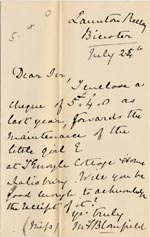 Launton Rectory
Bicester
July 25th
Dear Sir,
I enclose a
cheque of 5.4.0 as
last year, towards the
maintenance of the
little girl E
at Cottage Home
Salisbury. Will you be
good enough to acknowledge
the receipt of it?
Yrs truly
(Miss) M Blomfield